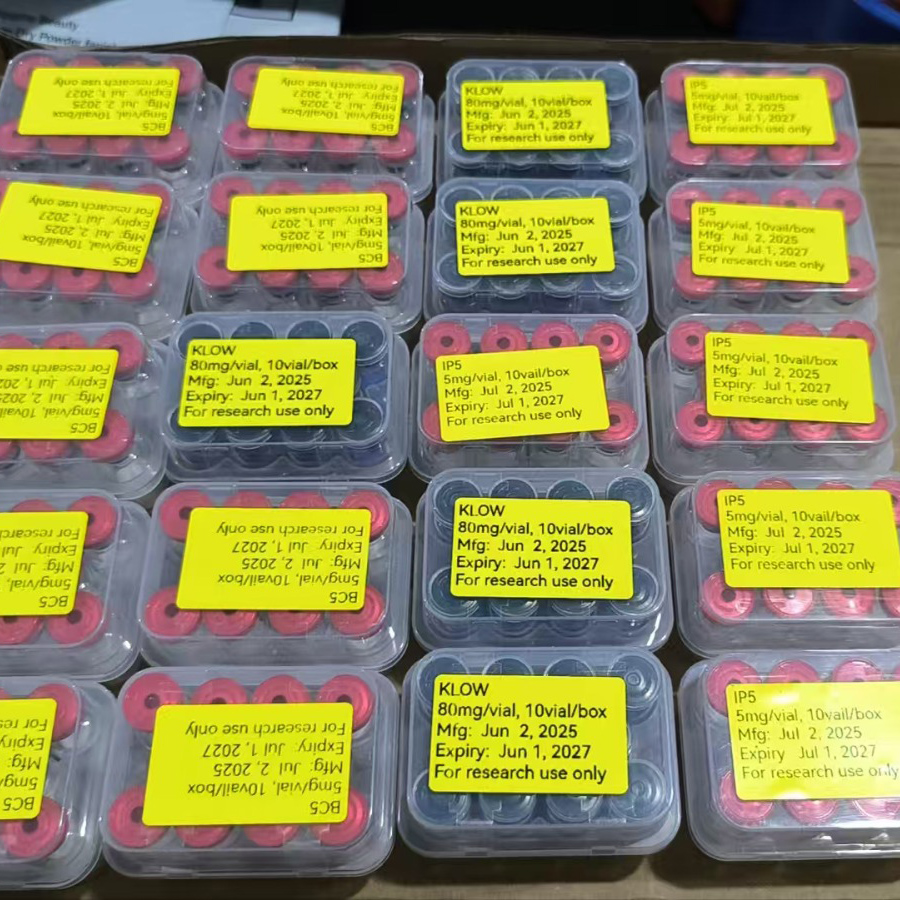 Beauty
Powder
BC5
5mg/vial, 10vail/box
Mfg: Jul 2, 2025
Expiry: Jul 1, 2027
For research use only
BC5
5mg/vial, 10vail/box
Mfg: Jul 2, 2025
Expiry: Jul 1, 2027
For research use only
KLOW
80mg/vial, 10vial/box
Mfg: Jun 2, 2025
Expiry: Jun 1, 2027
For research use only
IP5
5mg/vial, 10vail/box
Mfg: Jul 2, 2025
Expiry: Jul 1, 2027
For research use only
BC5
5mg/vial, 10vail/box
Mfg: Jul 2, 2025
Expiry: Jul 1, 2027
For research use only
BC5
5mg/vial, 10vail/box
Mfg: Jul 2, 2025
Expiry: Jul 1, 2027
For research use only
KLOW
80mg/vial, 10vial/box
Mfg: Jun 2, 2025
Expiry: Jun 1, 2027
For research use only
IP5
5mg/vial, 10vail/box
Mfg: Jul 2, 2025
Expiry: Jul 1, 2027
For research use only
BC5
5mg/vial, 10vail
Mfg: Jul 2, 2025
Expiry: Jul 1,
For research use
KLOW
80mg/vial, 10vial/box
Mfg: Jun 2, 2025
Expiry: Jun 1, 2027
For research use only
IP5
5mg/vial, 10vail/box
Mfg: Jul 2, 2025
Expiry: Jul 1, 2027
For research use only
IP5
5mg/vial, 10vail/box
Mfg: Jul 2, 2025
Expiry: Jul 1, 2027
For research use only
BC5
5mg/vial,
Mfg: Jul 2
Expiry: Jul
For research
BC5
5mg/vial, 10vail/box
Mfg: Jul 2, 2025
Expiry: Jul 1, 2027
For research use only
KLOW
80mg/vial, 10vial/box
Mfg: Jun 2, 2025
Expiry: Jun 1, 2027
For research use only
IP5
5mg/vial, 10vail/box
Mfg: Jul 2, 2025
Expiry: Jul 1, 2027
For research use only
BC5
5mg
Mfg:
Expiry
For res
BC5
5mg/vial, 10vail/box
Mfg: Jul 2, 2025
Expiry: Jul 1, 2027
For research use only
KLOW
80mg/vial, 10vial/box
Mfg: Jun 2, 2025
Expiry: Jun 1, 2027
For research use only
IP5
5mg/vial, 10vail/box
Mfg: Jul 2, 2025
Expiry Jul 1, 2027
For research use only